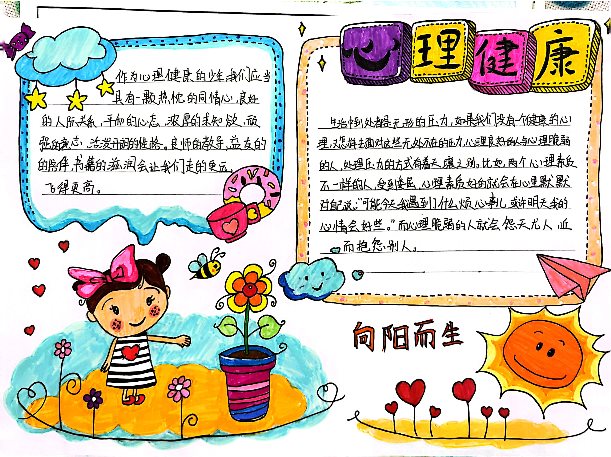 心理健康
作为心理健康的少年,我们应当
具有一颗热忱的同情心,良好
的人际关系,平和的心态,浓厚的求知欲,顽
强的意志,活泼开朗的性格。良师的教导,益友的
的陪伴,书籍的滋润会让我们走的更远
飞得更高。
生活中到处都是无形的压力,如果我们没有一个健康的心
理,又怎样去面对这些无处不在的压力,心理良好的人与心理脆弱
的人,处理压力的方式有着天壤之别。比如,两个心理素质
不一样的人,受到委屈,心理素质好的就会在心里默默
对自己说:“可能今天我遇到了什么烦心事儿,或许明天我的
心情会好些。”而心理脆弱的人就会怨天尤人,
而抱怨别人。
向阳而生